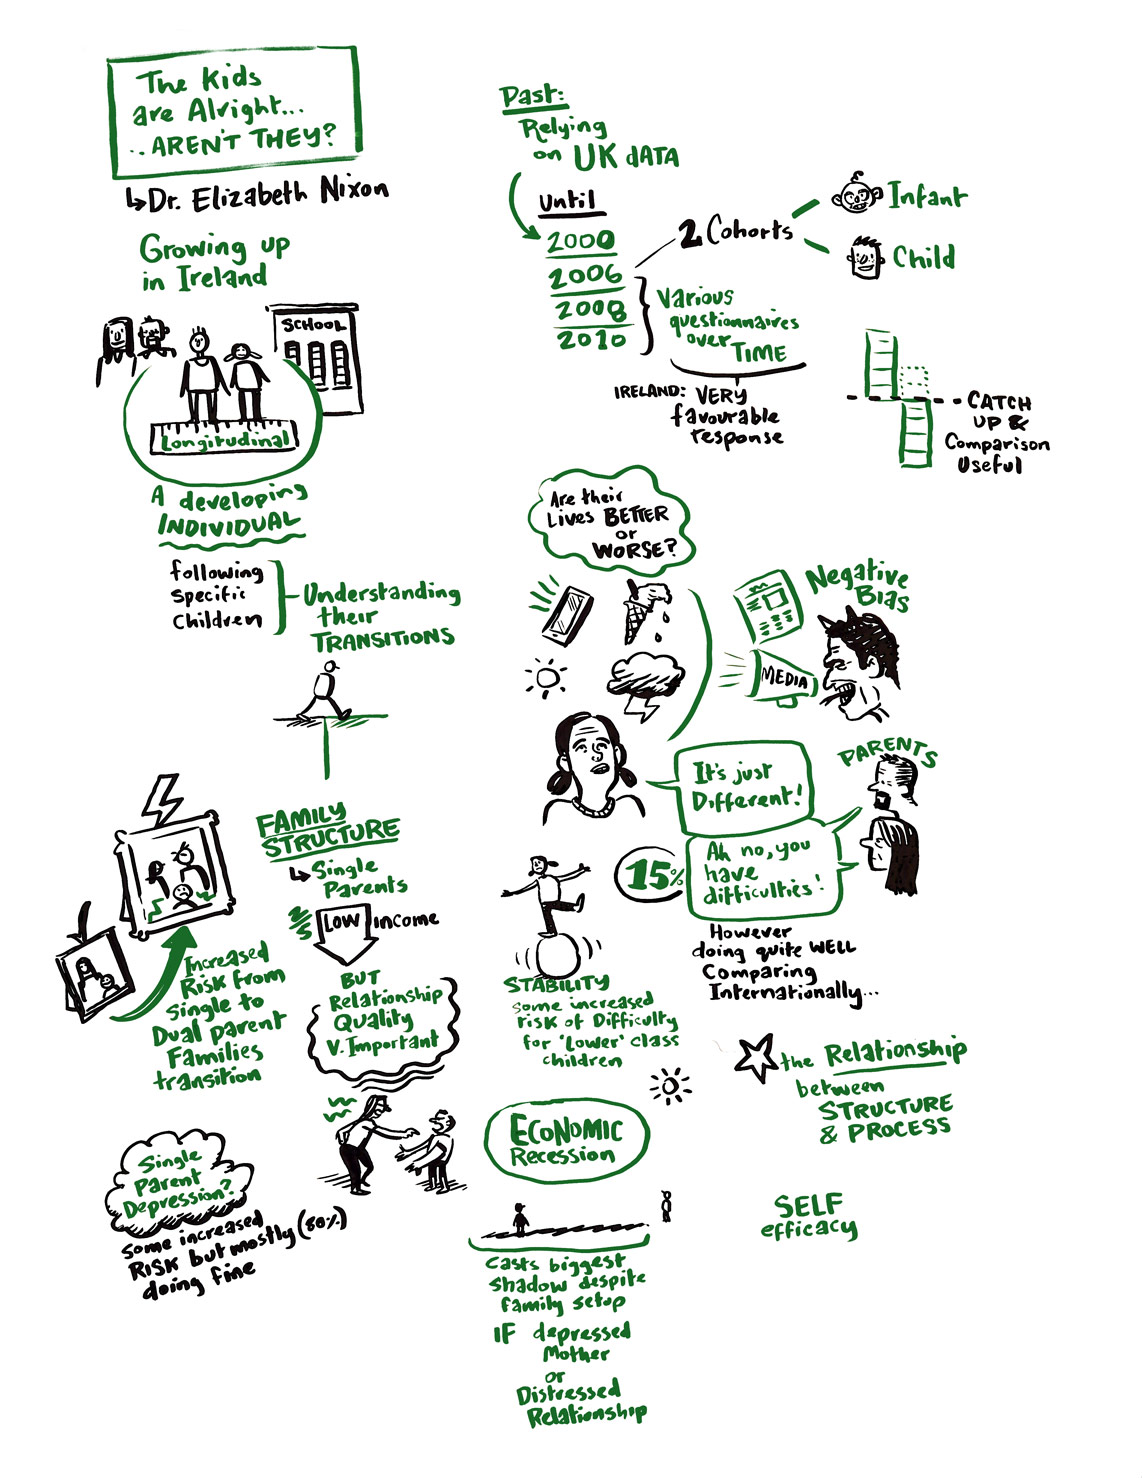 The Kids
are Alright...
..AREN'T THEY?
Dr. Elizabeth Nixon
Growing up
in Ireland
SCHOOL
Longitudinal
A developing
INDIVIDUAL
following
Specific
Children
Understanding
their
TRANSITIONS
Past:
Relying
on UK DATA
Until
2000
2006
2008
2010
2 Cohorts
Infant
Child
Various
questionnaires
over
TIME
IRELAND: VERY
favourable
response
CATCH
UP &
Comparison
Useful
Are their
Lives BETTER
or
WORSE?
Negative
Bias
MEDIA
PARENTS
It's just
Different!
15%
Ah no, you
have
difficulties!
However
doing quite WELL
Comparing
Internationally...
FAMILY
STRUCTURE
Single
Parents
2/5
LOW income
BUT
Relationship
Quality
V. Important
Increased
Risk from
Single to
Dual parent
Families
transition
STABILITY
Some increased
risk of Difficulty
for 'Lower' class
children
the Relationship
between
STRUCTURE
& PROCESS
SELF
efficacy
Single
Parent
Depression?
Some increased
RISK but mostly (80%)
doing fine
ECONOMIC
Recession
Casts biggest
shadow despite
family setup
IF depressed
Mother
or
Distressed
Relationship